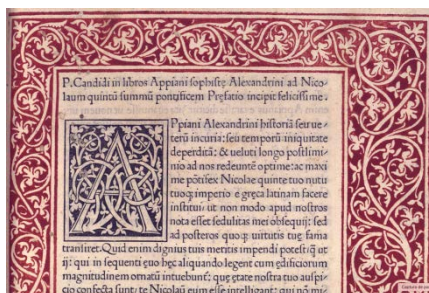 P. Candidi in libros Appiani sophistę Alexandrini ad Nico
laum quintū summū pontificem Pręfatio incipit felicissime.
APpiani Alexandrini historiā seu ue
terū incuria: seu temporū iniquitate
deperditā: & ueluti longo postlimi⸗
nio ad nos redeuntē optime: ac maxi
me pōtifex Nicolae quinte tuo nutu
tuoq; imperio e gręca latinam facere
institui: ut non modo apud nostros
nota esset sedulitas mei obsequij: sed
ad posteros quoq; uirtutis tuę fama
transiret. Quid enim dignius tuis meritis impendi potest: q̄ ut
ij: qui in sequenti ęuo hęc aliquando legent cum ędificiorum
magnitudinem ornatū intuebunt᷑: quę ętate nostra tuo auspi⸗
cio confecta sunt: te Nicolaū eum esse intelligant: qui nō mi⸗